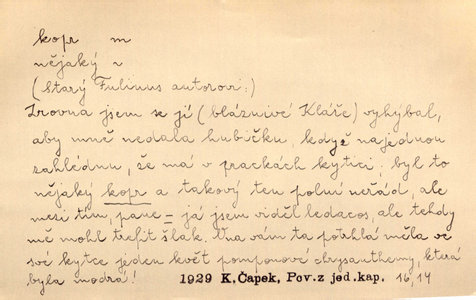 kopr m
nějaký v
(starý Fulinus autorovi:)
Zrovna jsem se jí (bláznivé Kláře) vyhýbal,
aby mně nedala hubičku, když najednou
zahlédnu, že má v prackách kytici; byl to
nějaký kopr a takový ten polní neřád, ale
mezi tím, pane – já jsem viděl ledacos, ale tehdy
mě mohl trefit šlak. Ona vám ta potrhlá měla ve
své kytce jeden květ pomponové chrysanthemy, která
byla modrá! 1929 K.Čapek, Pov.z jed.kap. 16,14